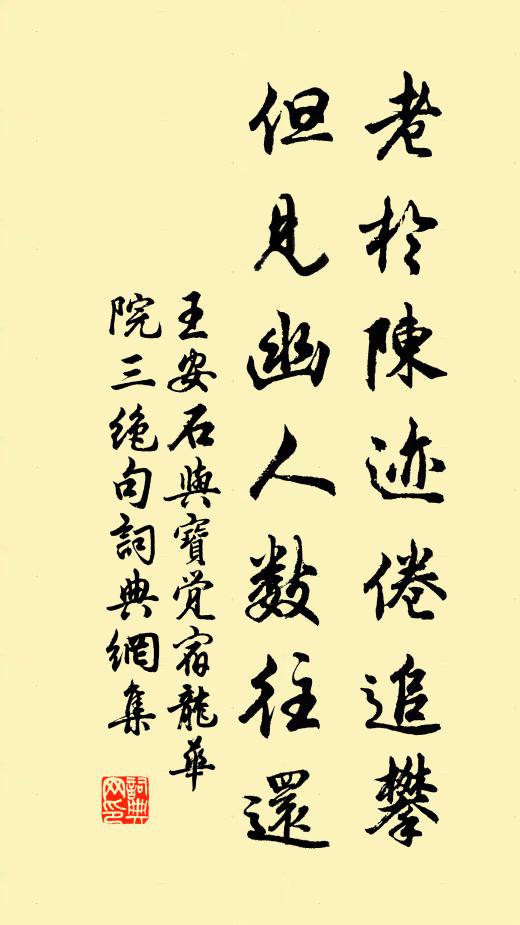 老於陳迹倦追攀
但見幽人數往還
王安石與寶覺宿龍華
院三絕句詞典網集
詞典網印